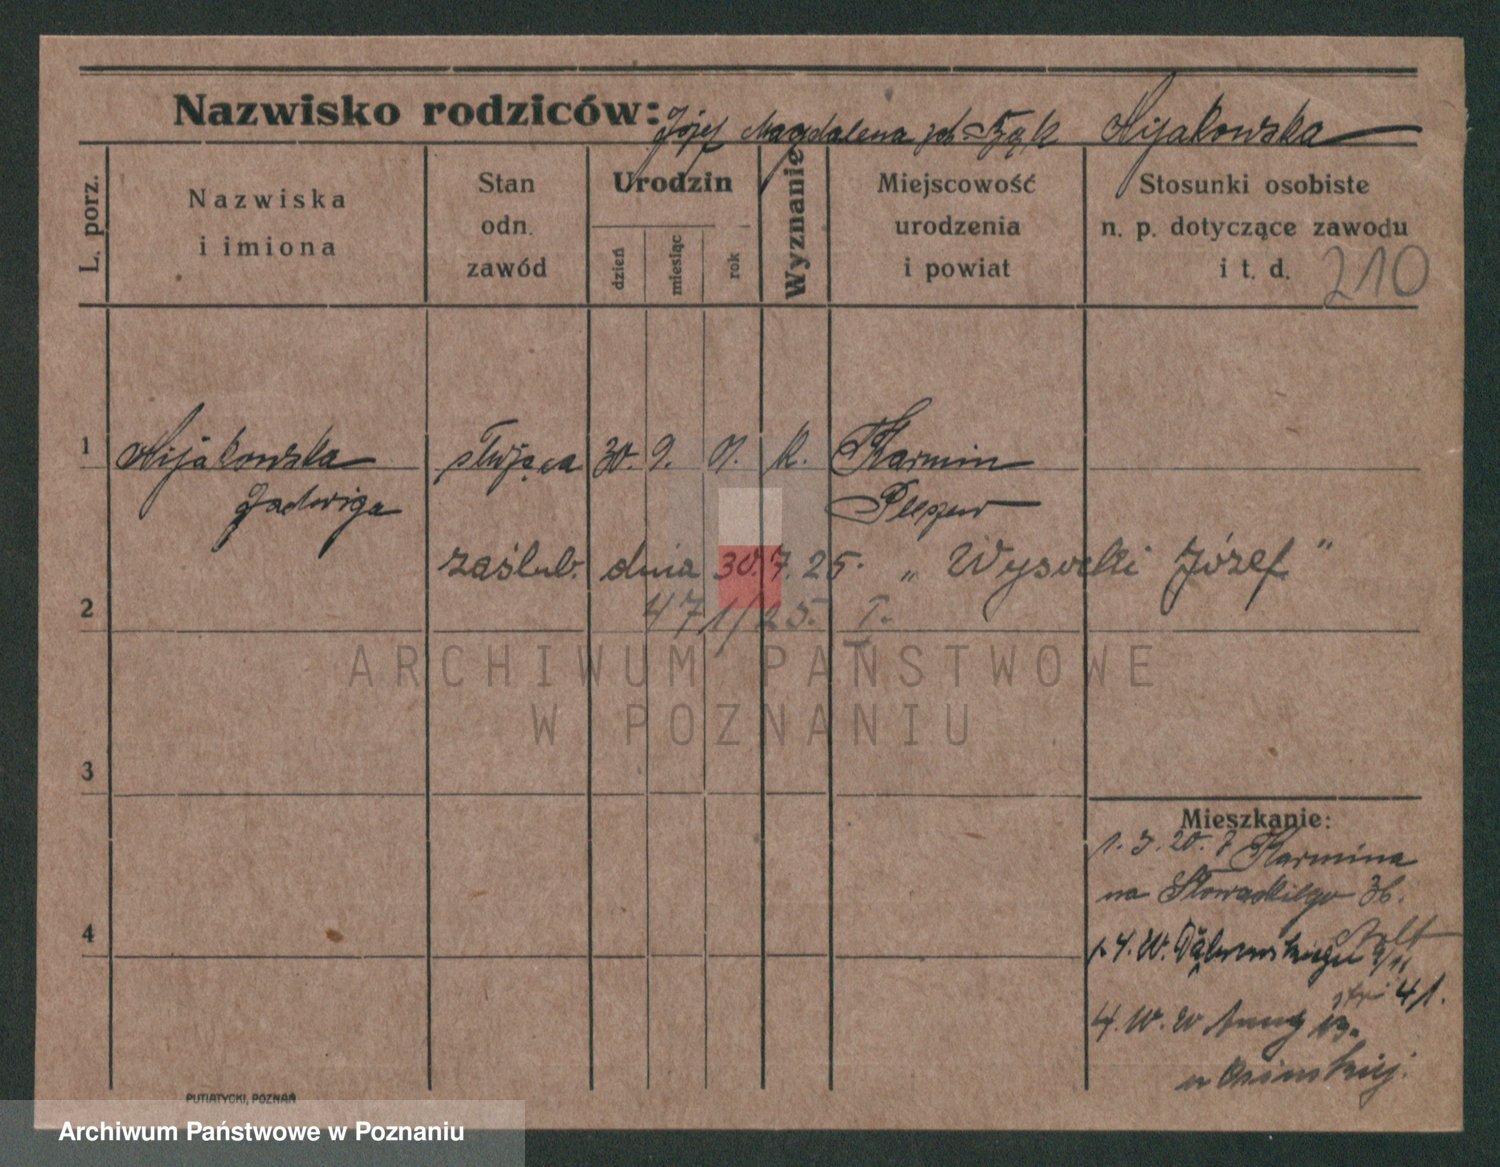 Nazwisko rodziców: Józef Magdalena Nijakowska
L. porz.
Nazwiska i imiona
Stan odn. zawód
Urodzin
dzień
miesiąc
rok
Wyznanie
Miejscowość urodzenia i powiat
Stosunki osobiste n. p. dotyczące zawodu i t. d.
210
1 Nijakowska służąca 30. 9. k. Karmin
Jadwiga Pleszew
zaślub. dnia 30.7.25. „Wysocki Józef"
2 471/25. I.
ARCHIWUM PAŃSTWOWE
W POZNANIU
3
Mieszkanie:
20. Karmina
na Słowackiego 36.
4
Dąbrowskiego
41.
4. W. 13.
PUTIATYCKI, POZNAŃ
Archiwum Państwowe w Poznaniu